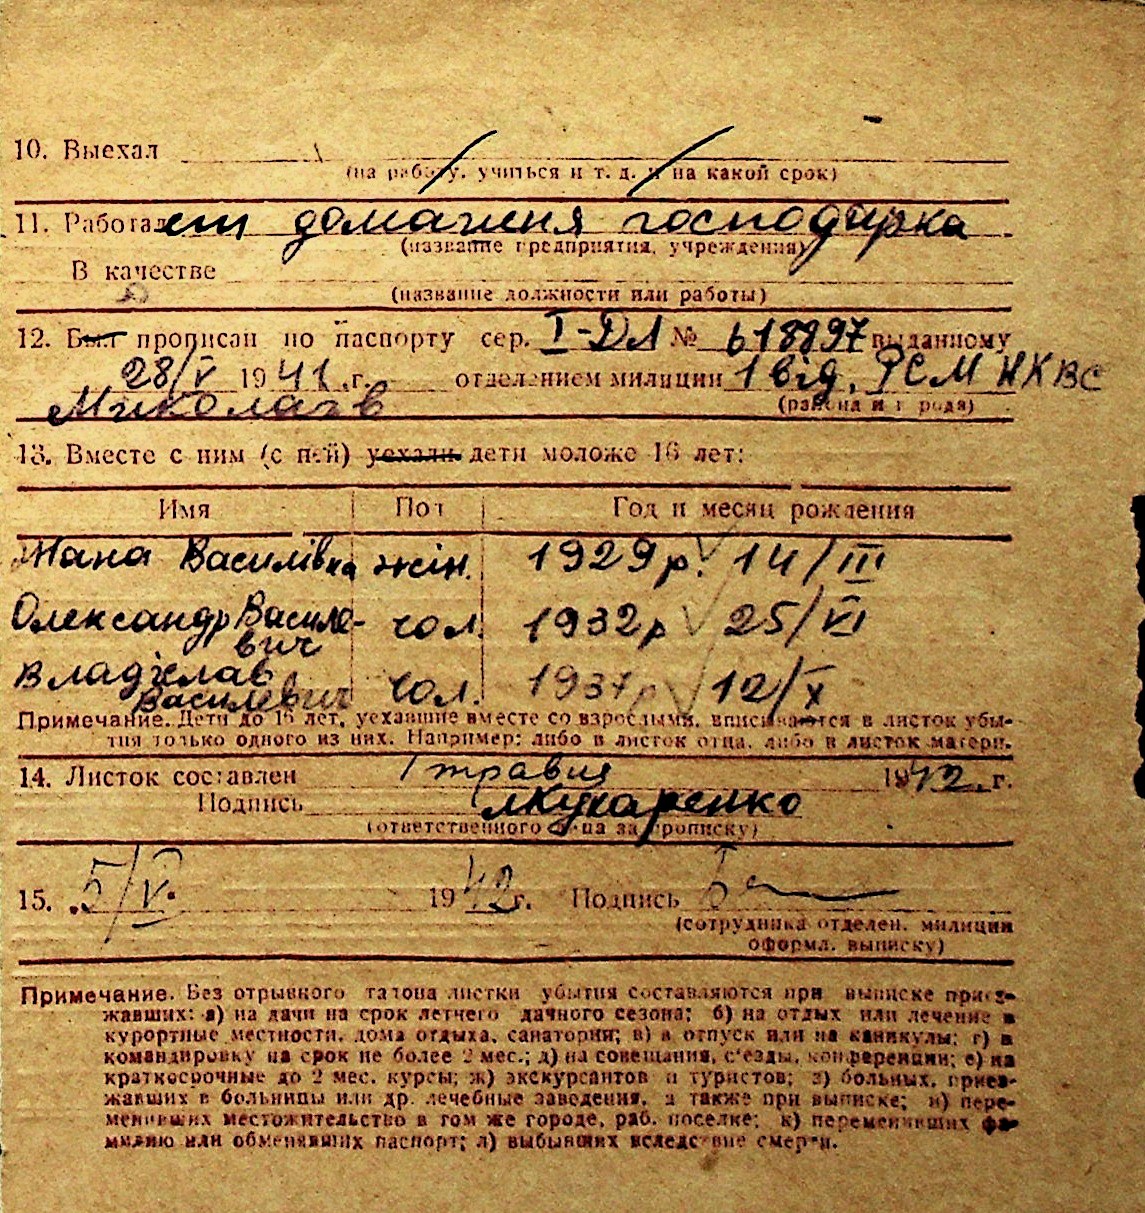 10. Выехал
(на работу, учиться и т. д. и на какой срок)
11. Работает домашня господарка
(название предприятия, учреждения)
В качестве
(название должности или работы)
12. Был прописан по паспорту сер. I-ДЛ № 618897 выданному
28/V 1941 г. отделением милиции 1 від. РСМ НКВС
Миколаїв (района и города)
13. Вместе с ним (с ней) уехали дети моложе 16 лет:
Имя Пол Год и месяц рождения
Жана Василівна жін. 1929 р. 14/III
Олександр Василе-
вич чол. 1932 р 25/VI
Владіслав
Василевич чол. 1937 р 12/X
Примечание. Дети до 16 лет, уехавшие вместе со взрослыми, вписываются в листок убы-
тия только одного из них. Например: либо в листок отца, либо в листок матери.
14. Листок составлен 1 травня 1942 г.
Подпись Кухаренко
(ответственного лица за прописку)
15. 5/V. 1942 г. Подпись
(сотрудника отделен. милиции
оформл. выписку)
Примечание. Без отрывного талона листки убытия составляются при выписке приез-
жавших: а) на дачи на срок летнего дачного сезона; б) на отдых или лечение в
курортные местности, дома отдыха, санатории; в) в отпуск или на каникулы; г) в
командировку на срок не более 2 мес.; д) на совещания, с'езды, конференции; е) на
краткосрочные до 2 мес. курсы; ж) экскурсантов и туристов; з) больных, приез-
жавших в больницы или др. лечебные заведения, а также при выписке; и) пере-
менивших местожительство в том же городе, раб. поселке; к) переменивших фа-
милию или обменявших паспорт; л) выбывших вследствие смерти.